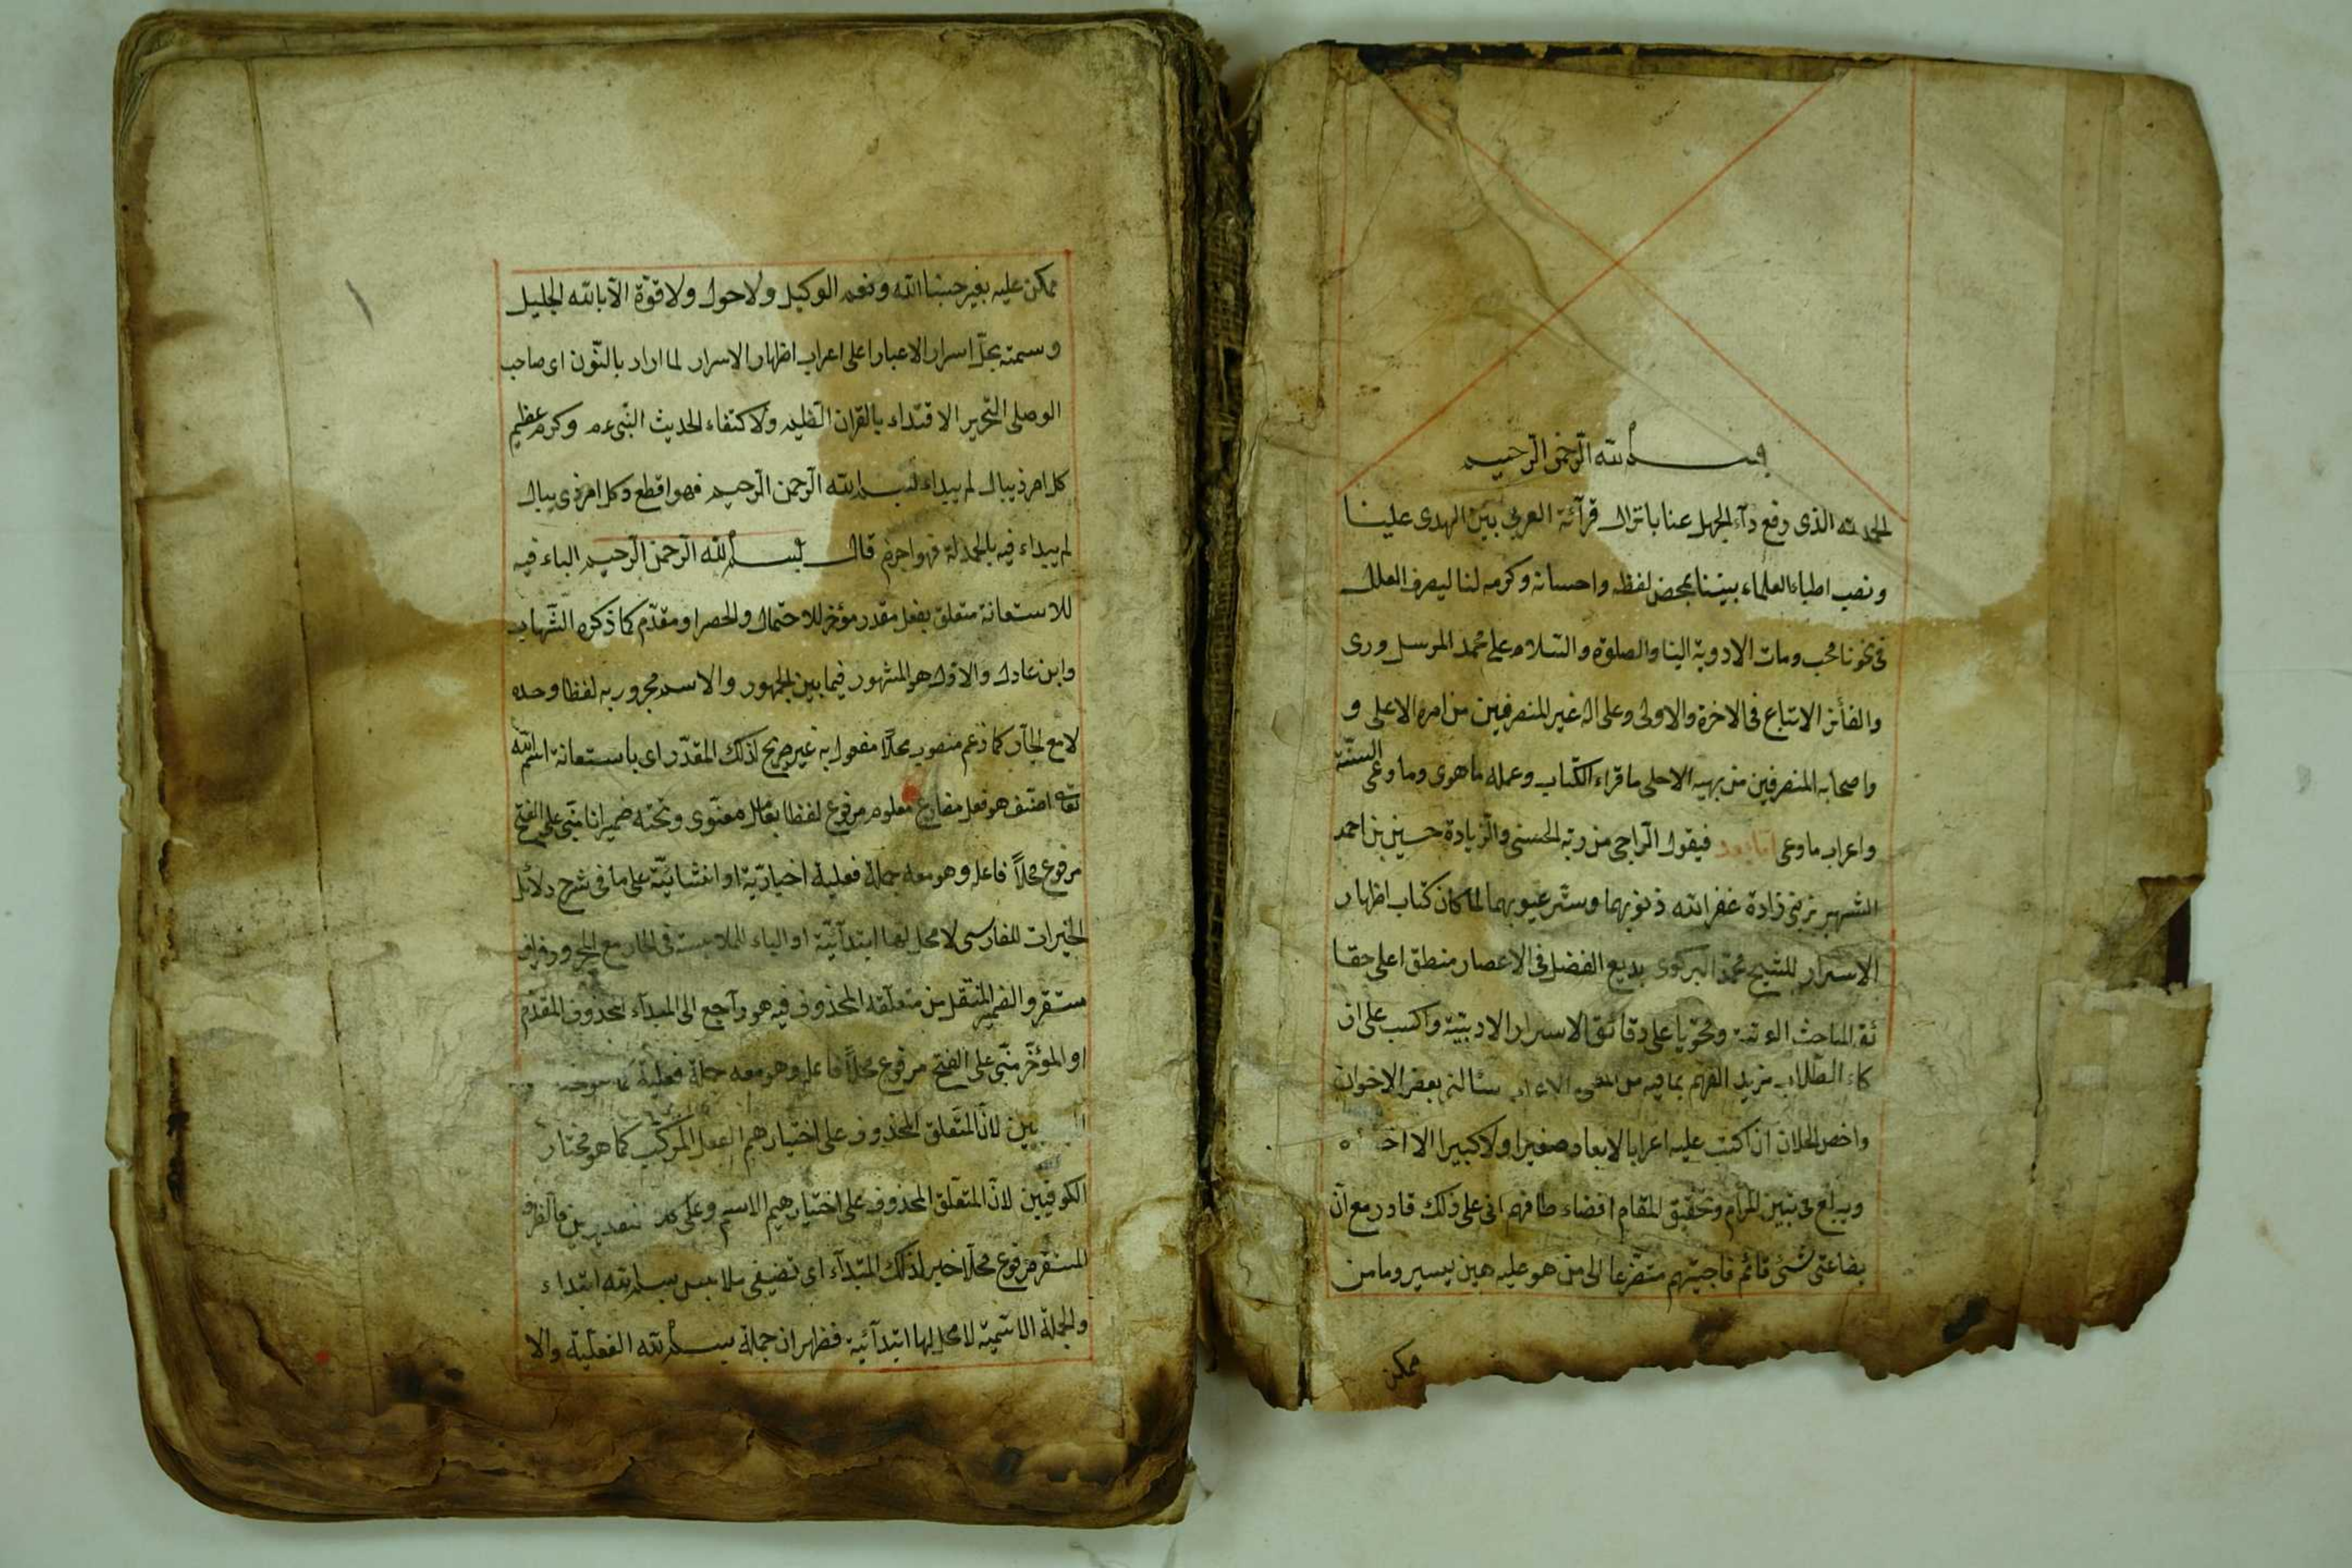 بسم الله الرحمن الرحيم
الحمد لله الذى رفع دآء الجهل عنا بانزال قرآنه العربى بين الهدى علينا
ونصب اطباء العلماء بيننا بمحض لفظه واحسانه وكرمه لنا ليصرف العلل
فى نحونا محب ومات الادوية الينا والصلوة والسلام على محمد المرسل ورى
والفائز الاتباع فى الاخرة والاولى وعلى اله غير المنصرفين من امره الاعلى و
واصحابه المنصرفين من بهيه الاحلى ما قراء الكتاب وعمله ما هوى وما وعى السنة
واعراب ما وعى اما بعد فيقول الراجى من ربه الحسنى والزيادة حسين بن احمد
الشهير بزينى زادة غفر الله ذنوبهما وستر عيوبهما لما كان كتاب اظهار
الاسرار للشيخ محمد البركوى بديع الفضل فى الاعصار منطق اعلى حقا
ئق المباحث ومحتويا على دقائق الاسرار الادبية واكسب على ان
كاء الطلاب مزيد الفهم بما فيه من سئالنى بعض الاخوان
واخص الخلان ان اكتب عليه اعرابا لا يغادر صغيرا ولا كبيرا الا
ويبلغ فى تبيين المرام وتحقيق المقام اقضاء ظانهم انى على ذلك قادر مع ان
بضاعتى شئ قائم فاجبتهم متضرعا الى من هو عليه هين يسير وما من
ممكن
ممكن عليه بغير حسبنا الله ونعم الوكيل ولا حول ولا قوة الا بالله الجليل
وسمته بحل اسرار الاعبار على اعراب اظهار الاسرار لما اراد بالنون اى صاحب
الوصلى التحرير الاقتداء بالقران العظيم ولاكتفاء لحديث النبى عم وكرم عظيم
كل امر ذيبال لم يبداء ببسم الله الرحمن الرحيم فهو اقطع وكل امر ذى يبال
لم يبداء فيه بالحمدلة فهو اجزم قال بسم الله الرحمن الرحيم الباء فيه
للاستعانة متعلق بفعل مقدر مؤخر للاحتمال والحصر او مقدم كما ذكره الشهاب
وابن عادل والاول هو المشهور فيما بين الجمهور والاسم مجرور به لفظا وحده
لا مع الجار كما زعم منصوب محلا مفعول به غير صريح لذلك المقدر اى باستعانة اسم الله
تعالى اصنف هو فعل مضارع معلوم مرفوع لفظا بعامل معنوى وتحته ضمير انا مبنى على الفتح
مرفوع محلا فاعله وهو معه جملة فعلية اخبارية او انشائية على ما فى شرح دلائل
الخيرات للفارسى لا محل لها ابتدآئية او الباء للملابسة فى الجار مع المجرور ظرف
مستقر والضمير المنتقل من متعلقه المحذوف فيه هو راجع الى المبدآء المحذوف المقدم
او المؤخر مبنى على الفتح مرفوع محلا فاعله وهو معه جملة فعلية
بين لان المتعلق المحذوف على اختيارهم الفعل المركب كما هو مختار
الكوفيين لان المتعلق المحذوف على اختيارهم الاسم وعلى فالظرف
المستقر مرفوع محلا خبر لذلك المبتدآء اى تصنيفى ملابس بسم الله ابتداء
والجملة الاسمية لا محل لها ابتدآئية فظهر ان جملة بسم الله الفعلية والا